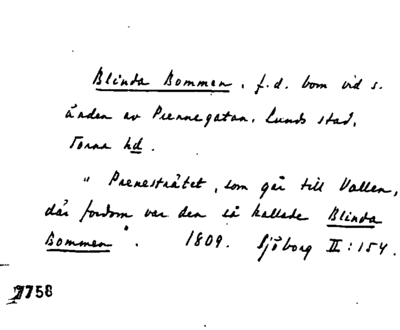 Blinda Bommen, f.d. bom vid s.
änden av Prennegatan. Lunds stad,
Torna hd.
" Prenesträtet, som går till Vallen,
där fordom var den så kallade Blinda
Bommen". 1809. Sjöborg II:154.
7758